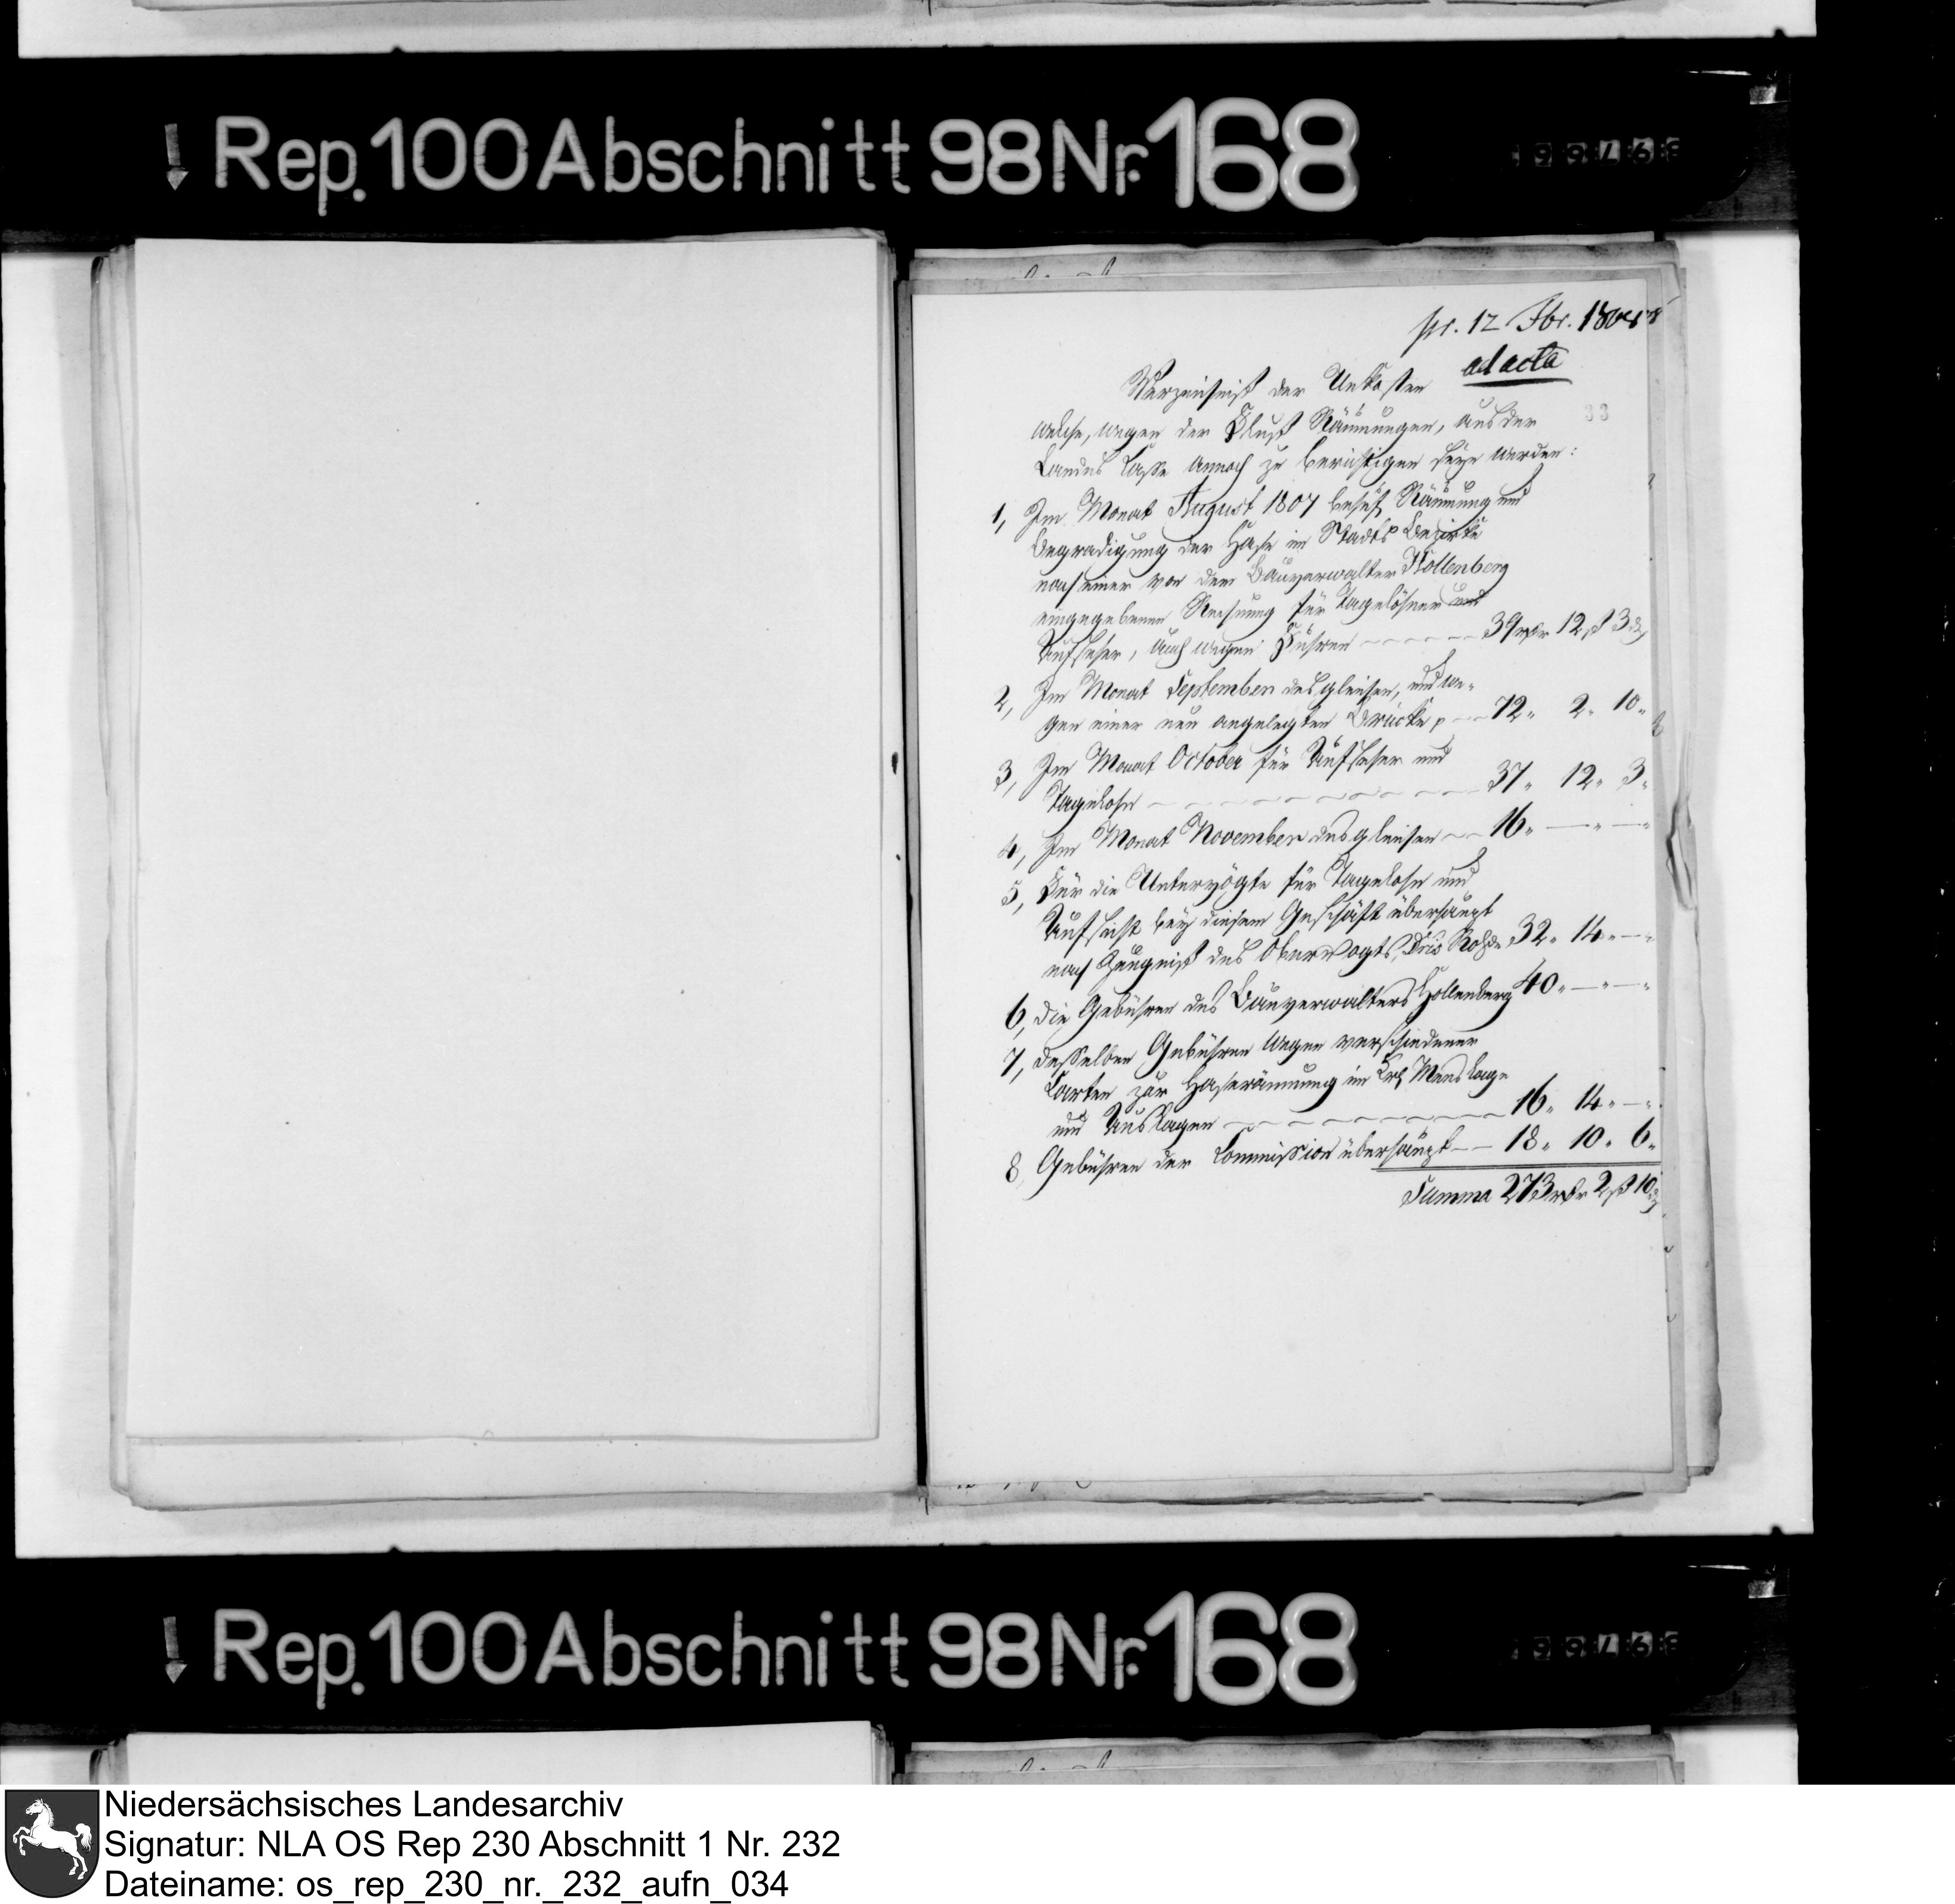 Rep. 100 Abschnitt 98 Nr. 168
pr. 12 Fbr. 1808
ad acta
33
Verzeichniß der Unkosten
welche, wegen der Fluß Räumungen, aus der
Landes Casse annoch zu berichtigen seyn werden:
1, Im Monat August 1807 behuf Räumung und
Begradigung der Hase im Stadts Bezirke
nach einer von dem Bauverwalter Hollenberg
eingegebenen Rechnung für Tagelöhner und
Aufseher, auch wegen Fuhren — 39 rthlr 12 ß 3 d
2, Im Monat September desgleichen, und we-
gen einer neu angelegten Brücke p — 72 " 2 " 10 "
3, Im Monat October für Aufseher und
Tagelohn — 37 " 12 " 3 "
4, Im Monat November desgleichen — 16 " — " — "
5, Für die Untervögte für Tagelohn und
Aufsicht bey diesem Geschäft überhaupt
nach Zeugniß des Obervogts 32 " 14 " — "
6, die Gebühren des Bauverwalters Hollenberg 40 " — " — "
7, desselben Gebühren wegen verschiedener
Carten zur Haseräumung im Menslage
und Auslagen — 16 " 14 " — "
8, Gebühren der Commission überhaupt — 18 " 10 " 6 "
Summa 273 rthlr 2 ß 10 d
Rep. 100 Abschnitt 98 Nr. 168
Niedersächsisches Landesarchiv
Signatur: NLA OS Rep 230 Abschnitt 1 Nr. 232
Dateiname: os_rep_230_nr._232_aufn_034